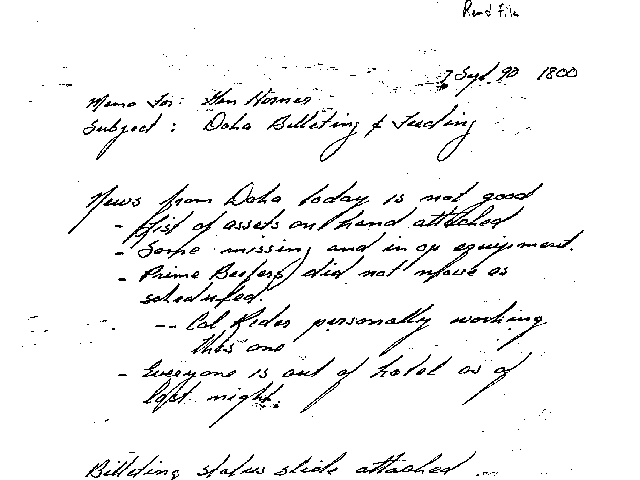 Read File
7 Sept 90 1800
Memo For: Gen Horner
Subject: Doha Billeting & Feeding
News from Doha today is not good
- List of assets on hand attached
- Some missing and in op equipment.
- Prime Beefers did not move as
scheduled.
-- Col Rider personally working
this one
- Everyone is out of hotel as of
last night.
Billeting status slide attached